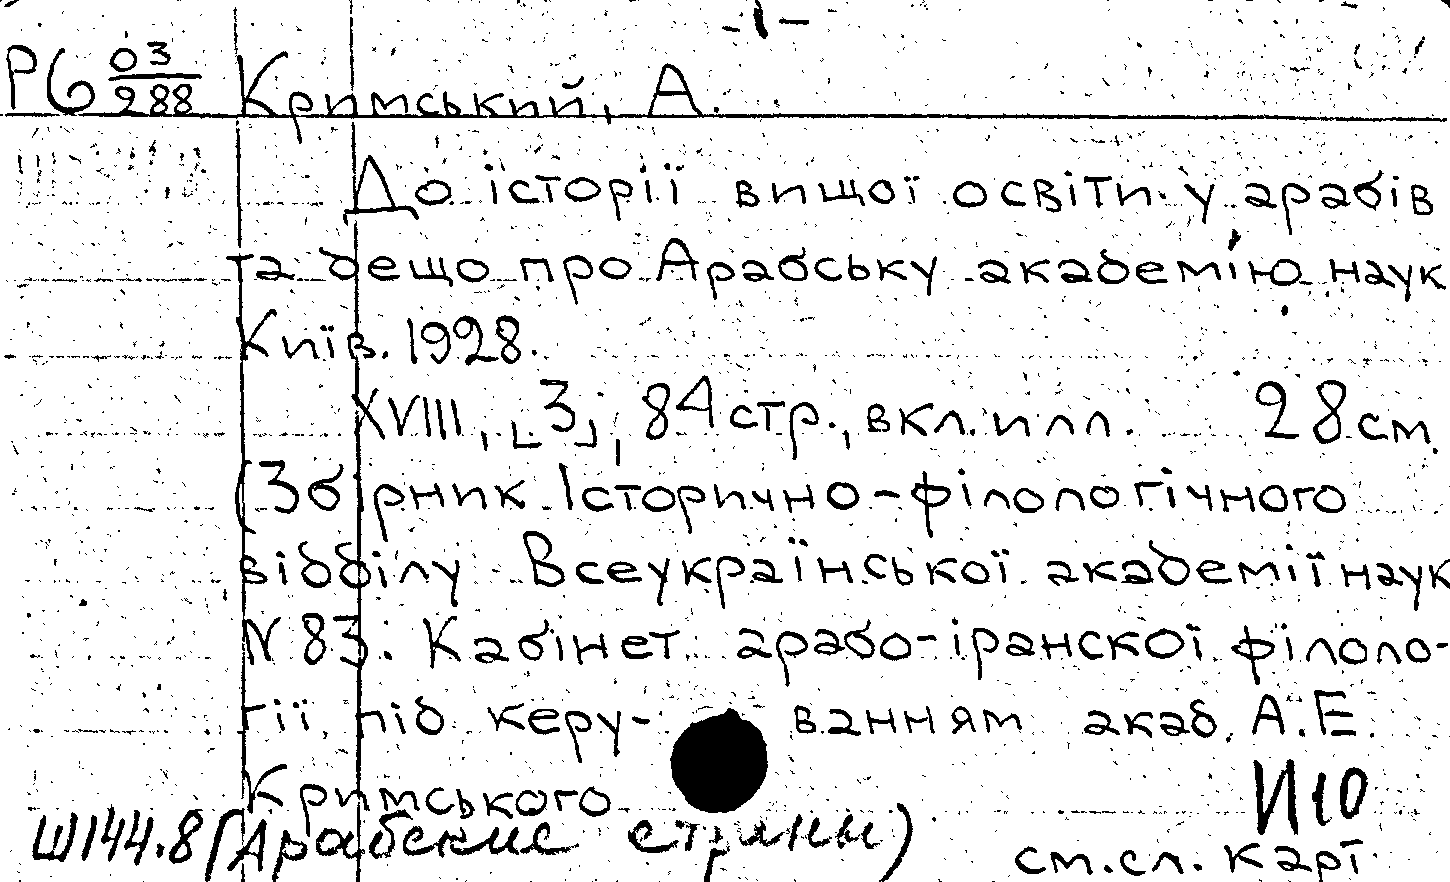 -1-
Р6 03/288 Кримський, А.
До історії вищої освіти у арабів
та дещо про Арабську академію наук
Київ. 1928.
XVIII, [3], 84 стр., вкл. илл. 28 см.
(Збірник Історично-філологічного
відділу Всеукраїнської академії наук
N 83. Кабінет арабо-іранскої філоло-
гії під керу- ванням акад. А.Е.
Кримського
И10
Ш144.8 (Арабские страны)
см. сл. карт